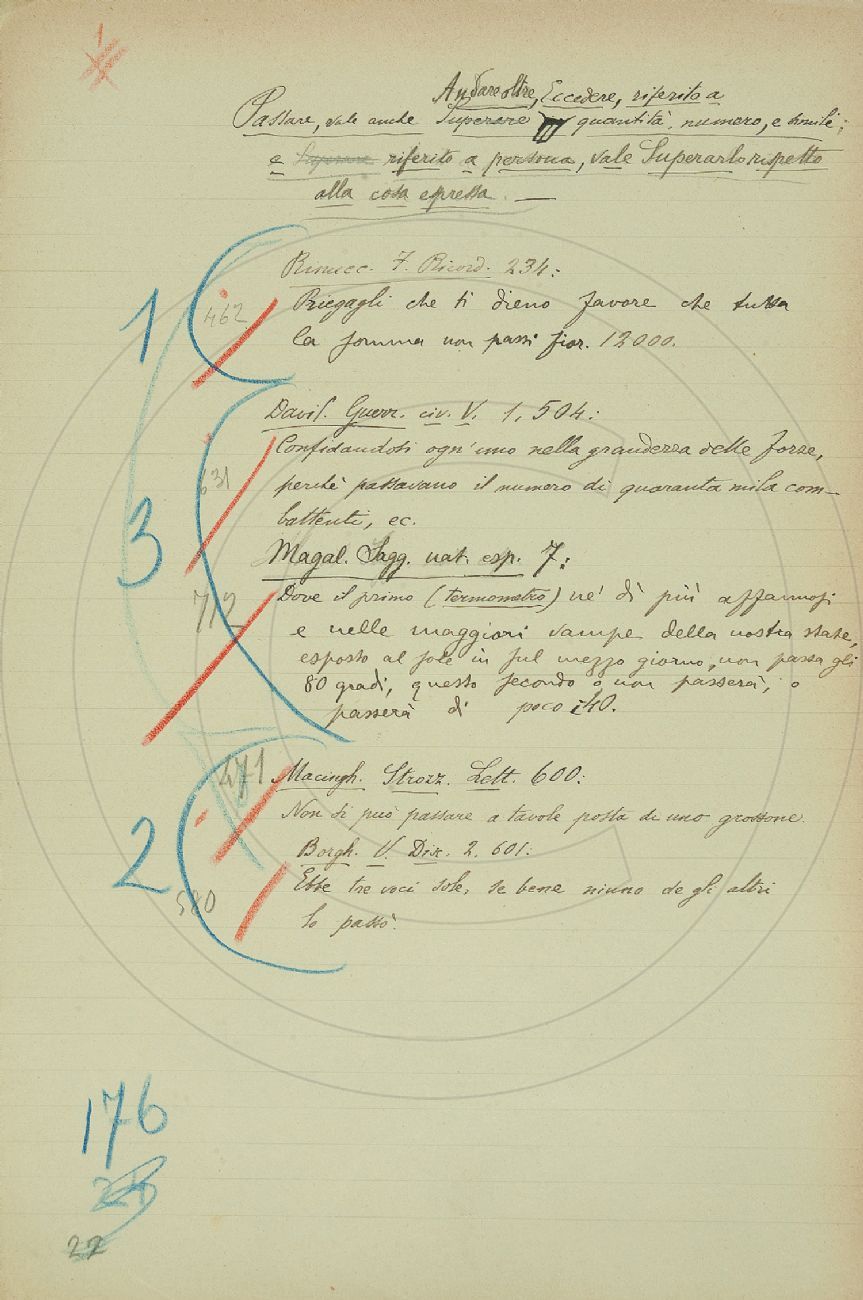 Andare oltre, Eccedere, riferito a
Passare, vale anche Superare quantità, numero, e simili;
e Superare riferito a persona, vale Superarlo rispetto
alla cosa espressa. —
Rinucc. F. Ricord. 234:
462
Priegagli che ti dieno favore che tutta
la somma non passi fior. 12000.
1
Davil. Guerr. civ. V. 1, 504:
Confidandosi ogn'uno nella grandezza delle forze,
631
perchè passavano il numero di quaranta mila com-
battenti, ec.
3
Magal. Sagg. nat. esp. 7:
712
Dove il primo (termometro) ne' dì più affannosi
e nelle maggiori vampe della nostra state,
esposto al sole in sul mezzo giorno, non passa gli
80 gradi, questo secondo o non passerà, o
passerà di poco i 40.
471
Macingh. Strozz. Lett. 600:
Non si può passare a tavole posta di uno grossone.
2
Borgh. V. Disc. 2. 601:
580
Ebbe tre voci sole, se bene niuno degli altri
lo passò.
176
22